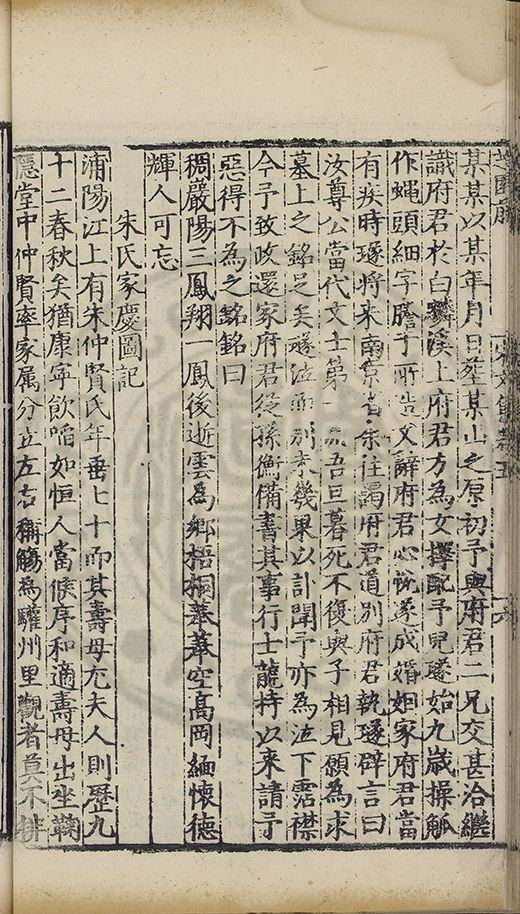 某某以某年月日塟某山之原初予與府君二兄交甚洽繼
識府君於白麟溪上府君方為女擇配予兒璲始九歲操觚
作蝇頭細字謄予所造文辭府君心悅遂成婚姻家府君當
有疾時璲將來南京省余往謁府君道別府君執璲辟言曰
汝尊公當代文士第一流吾旦暮死不復與子相見願為求
墓上之銘足矣璲泣而別未幾果以訃聞予亦為泣下霑襟
今予致政還家府君從孫衡備書其事行士龍持以來請予
惡得不為之銘銘曰
稠巖陽三鳳翔一鳳後逝雲為鄉梧桐菶菶空高岡緬懷德
輝人可忘
朱氏家慶圖記
浦陽江上有朱仲賢氏年垂七十而其壽母尤夫人則歷九
十二春秋矣猶康寧飲啗如恒人當候序和適壽母出坐鞠
隱堂中仲賢率家属分立左右稱觴為驩州里觀者莫不